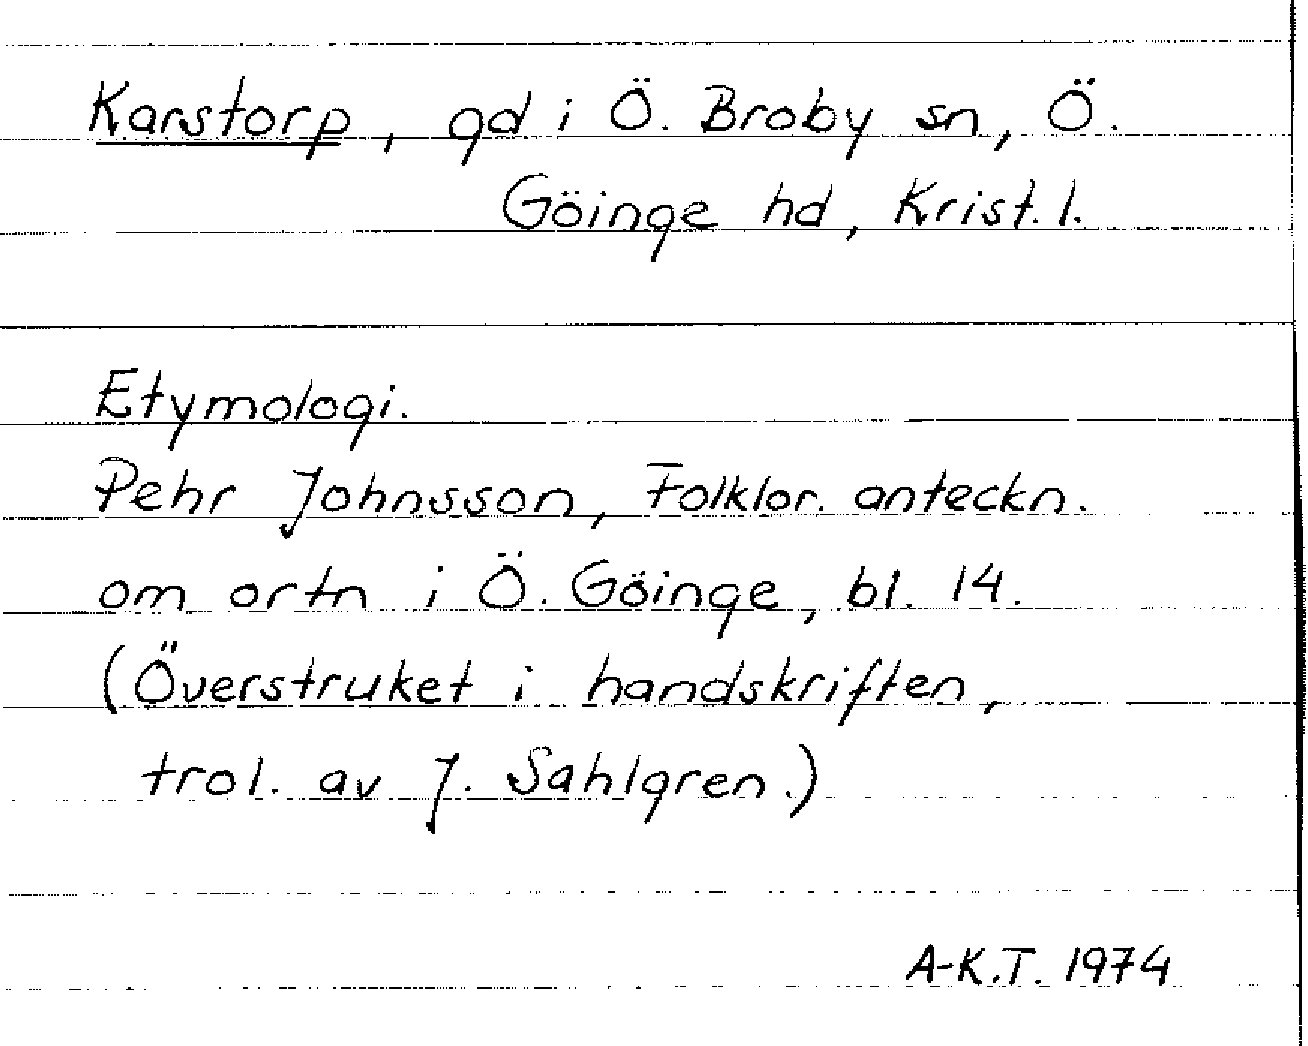 Karstorp, gd i Ö. Broby sn, Ö.
Göinge hd, Krist. l.
Etymologi.
Pehr Johnsson, Folklor. anteckn.
om ortn i Ö. Göinge, bl. 14.
(Överstruket i handskriften,
trol. av J. Sahlgren.)
A-K.T. 1974